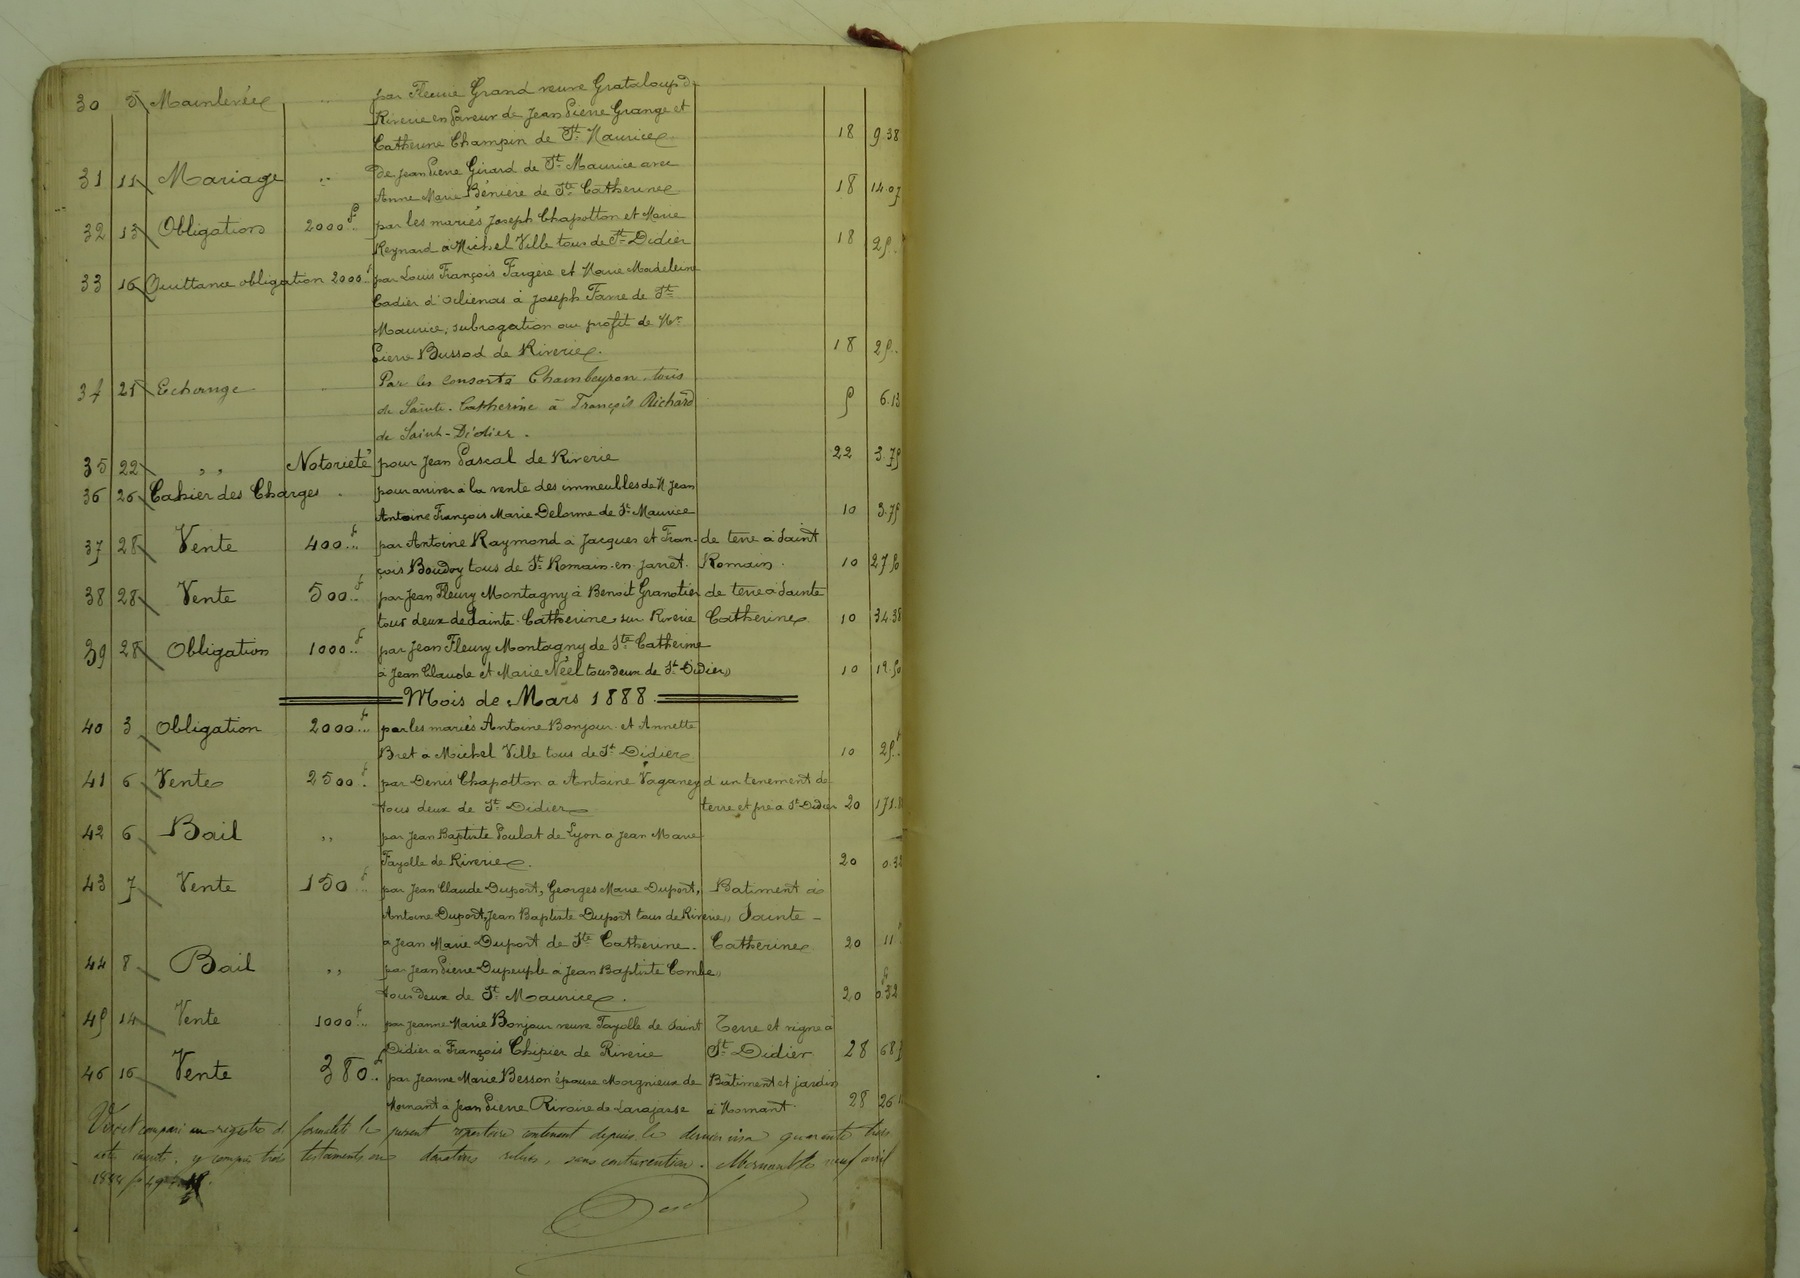 30 5 Mainlevée " par Fleurie Grand veuve Grataloup de
Riverie en faveur de Jean Pierre Grange et
Catherine Champin de St Maurice 18 9.38
31 11 Mariage " de Jean Pierre Girard de St Maurice avec
Anne Marie Bénière de Ste Catherine 18 14.07
32 13 Obligation 2000f.. par les mariés Joseph Chapotton et Marie
Reynard à Michel Ville tous de St Didier 18 25..
33 16 Quittance obligation 2000f.. par Louis François Fargère et Marie Madeleine
Cadier d'Orliénas à Joseph Farre de St
Maurice, subrogation au profit de Mr
Pierre Bussod de Riverie. 18 25..
34 21 Echange " Par les consorts Chambeyron, tous
de Sainte-Catherine à François Richard 5 6.13
de Saint-Didier.
35 22 ,, Notoriété pour Jean Pascal de Riverie 22 3.75
36 26 Cahier des Charges . pour arriver à la vente des immeubles de M Jean
Antoine François Marie Delorme de St Maurice 10 3.75
37 28 Vente 400f.. par Antoine Raymond à Jacques et Fran- de terre à Saint
çois Boudoy tous de St Romain-en-Jarret. Romain. 10 27.50
38 28 Vente 500f.. par Jean Fleury Montagny à Benoit Granotier de terre à Sainte
tous deux de Sainte-Catherine sur Riverie Catherine 10 34.38
39 28 Obligation 1000f.. par Jean Fleury Montagny de Ste Catherine
à Jean Claude et Marie Néel tous deux de St Didier 10 12.50
Mois de Mars 1888.
40 3 Obligation 2000f... par les mariés Antoine Bonjour et Annette
Bret à Michel Ville tous de St Didier 10 25f..
41 6 Vente 2500f. par Denis Chapotton à Antoine Vaganey d'un tenement de
tous deux de St Didier terre et pré à St Didier 20 171.
42 6 Bail ,, par Jean Baptiste Poulat de Lyon à Jean Marie
Fayolle de Riverie. 20 0.32
43 7 Vente 150f.. par Jean Claude Duport, Georges Marie Duport, Batiment à
Antoine Duport, Jean Baptiste Duport tous de Riverie Sainte -
à Jean Marie Duport de Ste Catherine. Catherine 20 11
44 8 Bail ,, par Jean Pierre Dupeuple à Jean Baptiste Combe
tous deux de St Maurice. 20 0f32
45 14 Vente 1000f.. par Jeanne Marie Bonjour veuve Fayolle de Saint Terre et vigne à
Didier à François Chipier de Riverie St Didier 28 68.
46 16 Vente 380f.. par Jeanne Marie Besson épouse Morgnieux de Bâtiment et jardin
Mornant à Jean Pierre Rivoire de Larajasse à Mornant. 28 26
Vu et comparé au registre de formalité le présent répertoire contenant depuis le dernier visa quarante trois
actes inscrits, y compris trois testaments ou donations reçus, sans contravention. Mornant le neuf avril
1888